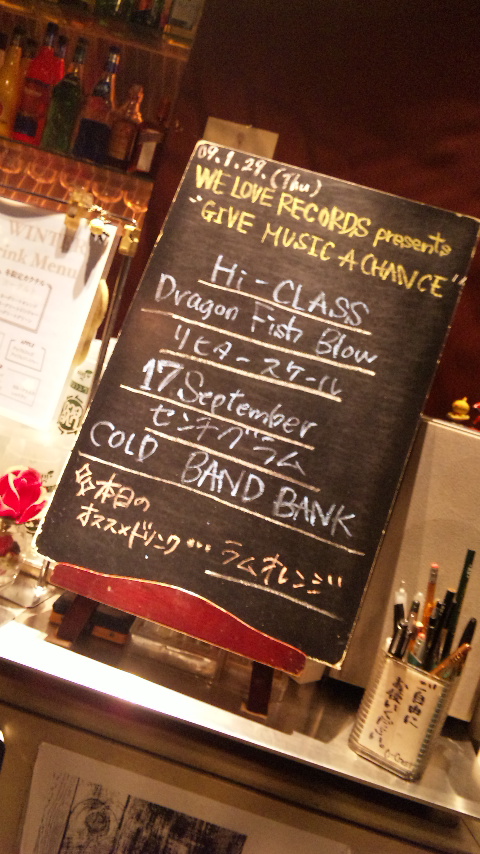 09.1.29.(Thu)
WE LOVE RECORDS presents
"GIVE MUSIC A CHANCE"
Hi-CLASS
Dragon Fish Blow
リヒタースケール
17 September
センチグラム
COLD BAND BANK
本日の
オススメドリンク…ラムオレンジ
WINTER
Drink Menu
ご自由に